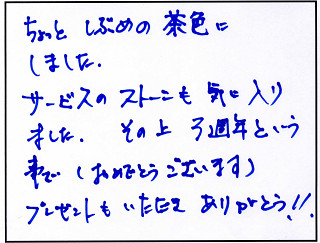 ちょっと しぶめの 茶色に
しました.
サービスの ストーンも 気に入り
ました. その上 3週年という
事で (おめでとうございます)
プレゼントも いただき ありがとう!!